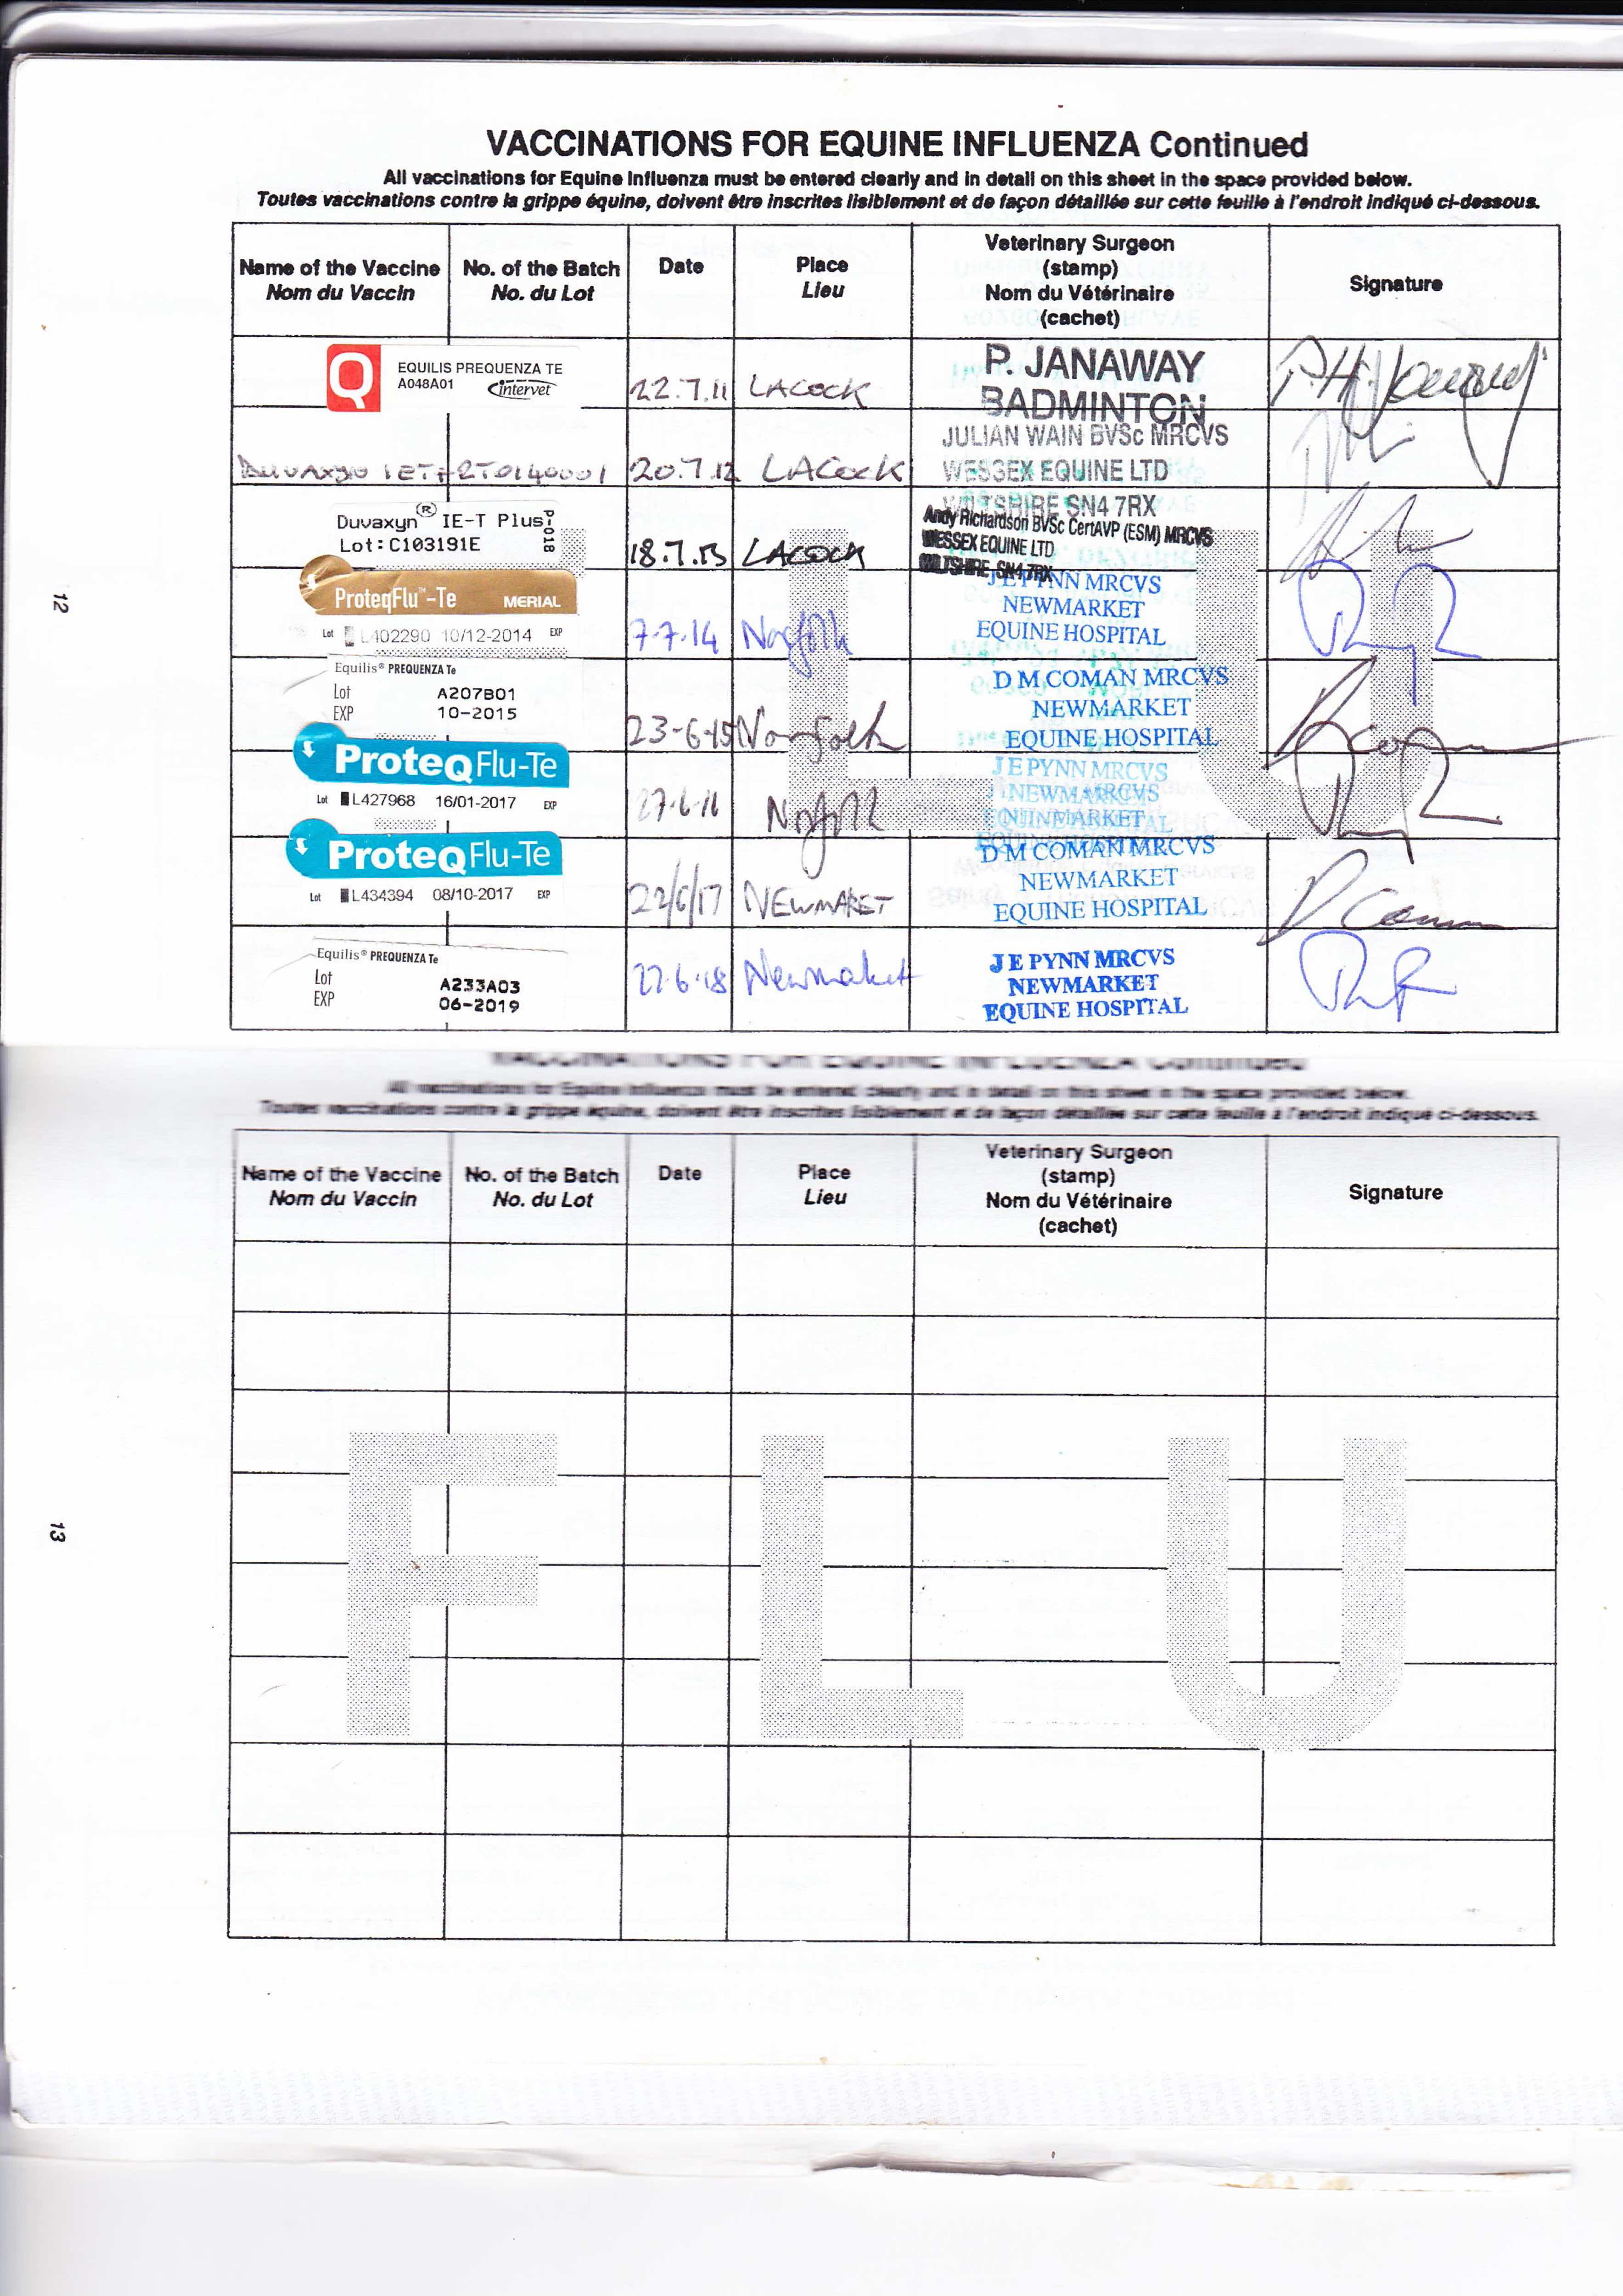 VACCINATIONS FOR EQUINE INFLUENZA Continued
All vaccinations for Equine Influenza must be entered clearly and in detail on this sheet in the space provided below.
Toutes vaccinations contre la grippe équine, doivent être inscrites lisiblement et de façon détaillée sur cette feuille à l'endroit indiqué ci-dessous.
Name of the Vaccine
Nom du Vaccin
No. of the Batch
No. du Lot
Date
Place
Lieu
Veterinary Surgeon
(stamp)
Nom du Vétérinaire
(cachet)
Signature
Q
EQUILIS PREQUENZA TE
A048A01 intervet
22.7.11 LACOCK
P. JANAWAY
BADMINTON
20.7.12 LACOCK
JULIAN WAIN BVSc MRCVS
WESSEX EQUINE LTD
WILTSHIRE SN4 7RX
Duvaxyn® IE-T Plus
Lot: C103191E
P-018
18.7.13 LACOCK
Andy Richardson BVSc CertAVP (ESM) MRCVS
WESSEX EQUINE LTD
WILTSHIRE SN4 7RX
ProteqFlu™-Te MERIAL
Lot L402290 10/12-2014 EXP
7.7.14 Norfolk
J E PYNN MRCVS
NEWMARKET
EQUINE HOSPITAL
Equilis® PREQUENZA Te
Lot A207B01
EXP 10-2015
23-6-15 Norfolk
D M COMAN MRCVS
NEWMARKET
EQUINE HOSPITAL
ProteqFlu-Te
Lot L427968 16/01-2017 EXP
27.6.16 Norfolk
J E PYNN MRCVS
NEWMARKET
ProteqFlu-Te
Lot L434394 08/10-2017 EXP
22/6/17 NEWMARET
D M COMAN MRCVS
NEWMARKET
EQUINE HOSPITAL
Equilis® PREQUENZA Te
Lot A233A03
EXP 06-2019
27.6.18 Newmarket
J E PYNN MRCVS
NEWMARKET
EQUINE HOSPITAL
L U
12
VACCINATIONS FOR EQUINE INFLUENZA Continued
All vaccinations for Equine Influenza must be entered clearly and in detail on this sheet in the space provided below.
Toutes vaccinations contre la grippe équine, doivent être inscrites lisiblement et de façon détaillée sur cette feuille à l'endroit indiqué ci-dessous.
Name of the Vaccine
Nom du Vaccin
No. of the Batch
No. du Lot
Date
Place
Lieu
Veterinary Surgeon
(stamp)
Nom du Vétérinaire
(cachet)
Signature
FLU
13